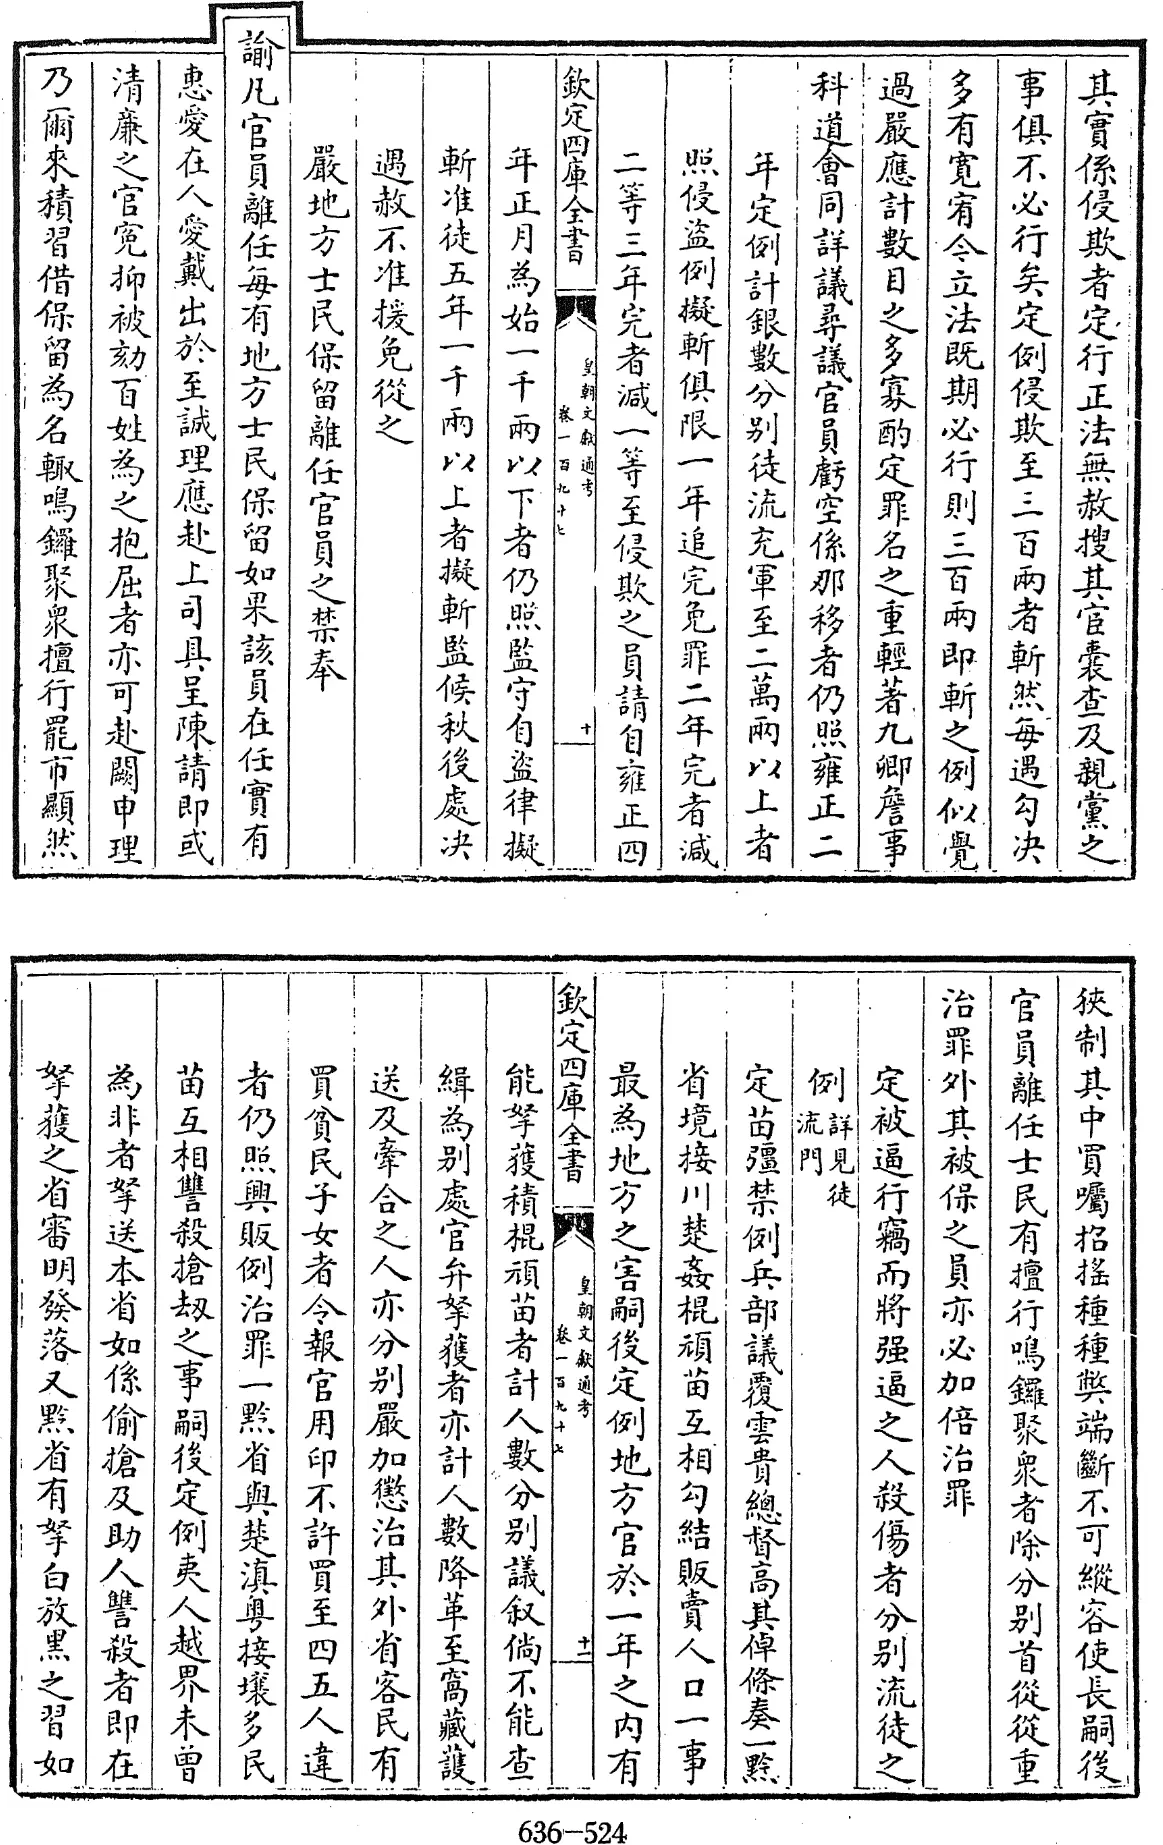 其實係侵欺者定行正法無赦搜其宦囊查及親黨之
事俱不必行矣定例侵欺至三百兩者斬然每遇勾決
多有寛宥今立法既期必行則三百兩即斬之例似覺
過嚴應計數目之多寡酌定罪名之重輕著九卿詹事
科道會同詳議尋議官員虧空係那移者仍照雍正二
年定例計銀數分别徒流充軍至二萬兩以上者
照侵盜例擬斬俱限一年追完免罪二年完者減
二等三年完者減一等至侵欺之員請自雍正四
欽定四庫全書
皇朝文獻通考
卷一百九十七
十
年正月為始一千兩以下者仍照監守自盜律擬
斬准徒五年一千兩以上者擬斬監候秋後處决
遇赦不准援免從之
嚴地方士民保留離任官員之禁奉
諭凡官員離任每有地方士民保留如果該員在任實有
惠愛在人愛戴出於至誠理應赴上司具呈陳請即或
清廉之官寃抑被劾百姓為之抱屈者亦可赴闕申理
乃爾來積習借保留為名輒鳴鑼聚衆擅行罷市顯然
狹制其中買囑招搖種種弊端斷不可縱容使長嗣後
官員離任士民有擅行鳴鑼聚衆者除分别首從從重
治罪外其被保之員亦必加倍治罪
定被逼行竊而將强逼之人殺傷者分别流徒之
例詳見徒流門
定苗疆禁例兵部議覆雲貴總督高其倬條奏一黔
省境接川楚姦棍頑苗互相勾結販賣人口一事
最為地方之害嗣後定例地方官於一年之内有
欽定四庫全書
皇朝文獻通考
卷一百九十七
十一
能拏獲積棍頑苗者計人數分别議叙倘不能查
緝為别處官弁拏獲者亦計人數降革至窩藏護
送及牽合之人亦分别嚴加懲治其外省客民有
買貧民子女者令報官用印不許買至四五人違
者仍照興販例治罪一黔省與楚滇粤接壤多民
苗互相讐殺搶刼之事嗣後定例夷人越界未曾
為非者拏送本省如係偷搶及助人讐殺者即在
拏獲之省審明發落又黔省有拏白放黑之習如
636-524